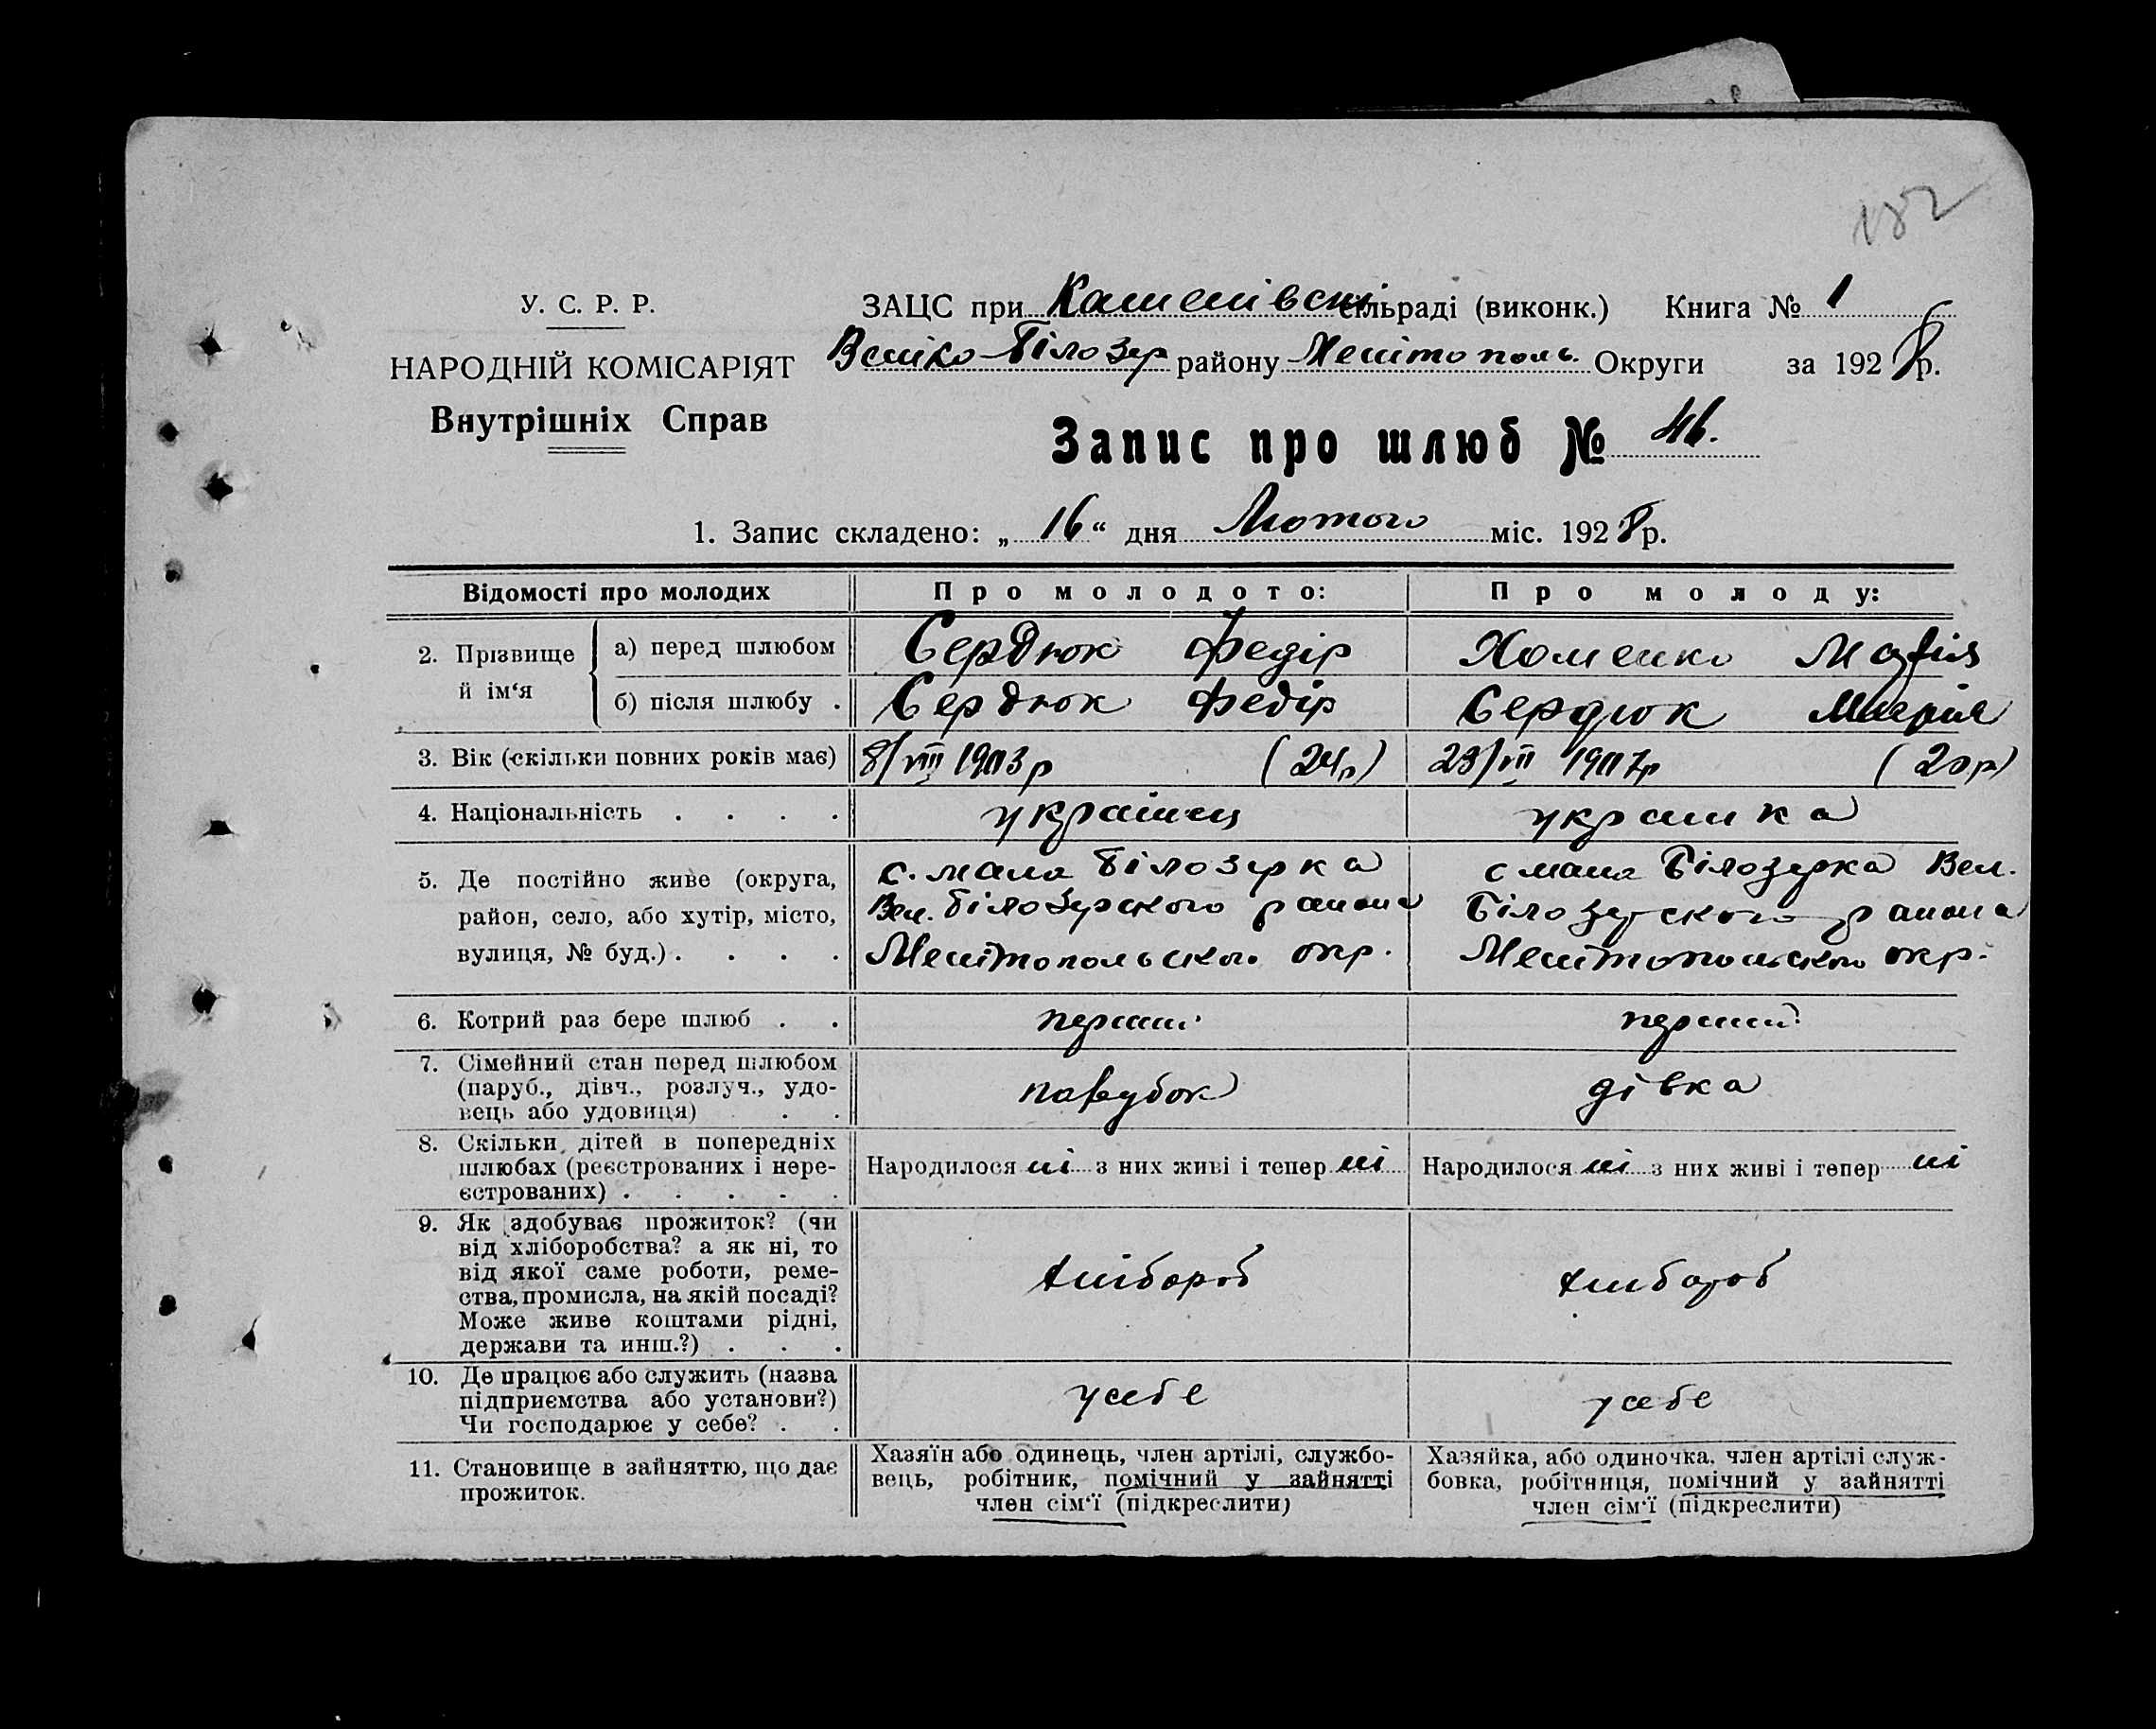 182
У. С. Р. Р.
НАРОДНІЙ КОМІСАРІЯТ
Внутрішніх Справ
ЗАЦС при сільраді (виконк.) Книга № 1
Велико-Білозер району Мелітополь. Округи за 1928 р.
Запис про шлюб № 46.
1. Запис складено: „16“ дня Лютого міс. 1928 р.
Відомості про молодих
Про молодого:
Про молоду:
2. Прізвище й ім‘я
а) перед шлюбом
Сердюк Федір
Хоменко Марія
б) після шлюбу .
Сердюк Федір
Сердюк Марія
3. Вік (скільки повних років має)
8/VIII 1903 р (24 р)
23/VII 1907 р (20 р)
4. Національність . . . .
українец
украинка
5. Де постійно живе (округа,
район, село, або хутір, місто,
вулиця, № буд.) . . . .
с. мала Білозерка
Вел. Білозерского района
Мелітопольского окр.
с мала Білозерка Вел.
Білозерского района
Мелитопольского окр.
6. Котрий раз бере шлюб . .
перший
перший
7. Сімейний стан перед шлюбом
(паруб., дівч., розлуч., удо-
вець або удовиця) . .
парубок
дівка
8. Скільки дітей в попередніх
шлюбах (реєстрованих і нере-
єстрованих) . . . . .
Народилося ні з них живі і тепер ні
Народилося ні з них живі і тепер ні
9. Як здобуває прожиток? (чи
від хліборобства? а як ні, то
від якої саме роботи, реме-
ства, промисла, на якій посаді?
Може живе коштами рідні,
держави та инш.?) . . .
хлібороб
хлибороб
10. Де працює або служить (назва
підприємства або установи?)
Чи господарює у себе? . .
у себе
у себе
11. Становище в зайняттю, що дає
прожиток.
Хазяїн або одинець, член артілі, службо-
вець, робітник, помічний у зайнятті
член сім‘ї (підкреслити)
Хазяйка, або одиночка, член артілі служ-
бовка, робітниця, помічний у зайнятті
член сім‘ї (підкреслити)